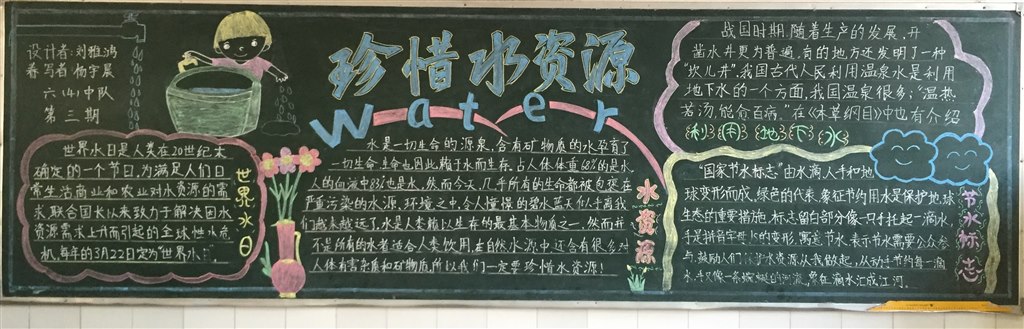 设计者:刘雅鸿
书写者 杨宇晨
六(4)中队
第三期
珍惜水资源
Water
世界水日是人类在20世纪末
确定的一个节日,为满足人们日
常生活商业和农业对水资源的需
求,联合国长以来致力于解决因水
资源需求上升而引起的全球性水危
机,每年的3月22日定为"世界水
世界水日
水是一切生命的源泉,含有矿物质的水孕育了
一切生命 生命也因此赖于水而生存.占人体体重68%的是水,
人的血液中83%也是水,然而今天,几乎所有的生命都被包裹在
严重污染的水源.环境之中,令人憧憬的碧水蓝天似乎离我
们越来越远了,水是人类赖以生存的最基本物质之一,然而并
不是所有的水者适合人类饮用,在自然水源中还含有很多对
人体有害杂质和矿物质,所以我们一定要珍惜水资源!
水资源
战国时期,随着生产的发展,开
凿水井更为普遍,有的地方还发明了一种
"坎儿井".我国古代人民利用温泉水是利用
地下水的一个方面,我国温泉很多:"温热
若汤,能愈百病."在《本草纲目》中也有介绍
利用地下水
"国家节水标志"由水滴人手和地
球变形而成,绿色的代表,象征节约用水是保护地球
生态的重要措施,标志留白部分像一只手托起一滴水
手是拼音字母JS的变形,寓意节水,表示节水需要公众参
与,鼓励人们 水资源从我做起,从动手节约每一滴
又像一条蜿蜒的河流,象征滴水汇成江河.
节水标志